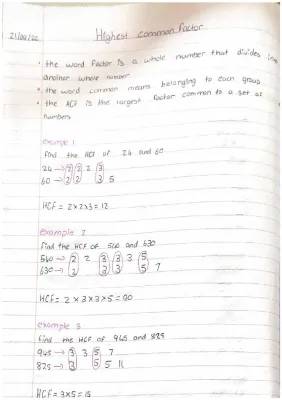 21/09/22
Highest common factor
• the word factor is a whole number that divides into
another whole number
• the word common means belonging to each group
• the HCF is the largest factor common to a set of
numbers
example 1
find the HCF of 24 and 60
24 → 2 2 2 3
60 → 2 2 3 5
HCF = 2×2×3 = 12
example 2
find the HCF OF 540 and 630
540 → 2 2 3 3 3 5
630 → 2 3 3 5 7
HCF = 2 × 3 × 3 × 5 = 90
example 3
find the HCF of 945 and 825
945 → 3 3 5 7
825 → 3 5 5 11
HCF = 3×5 = 15